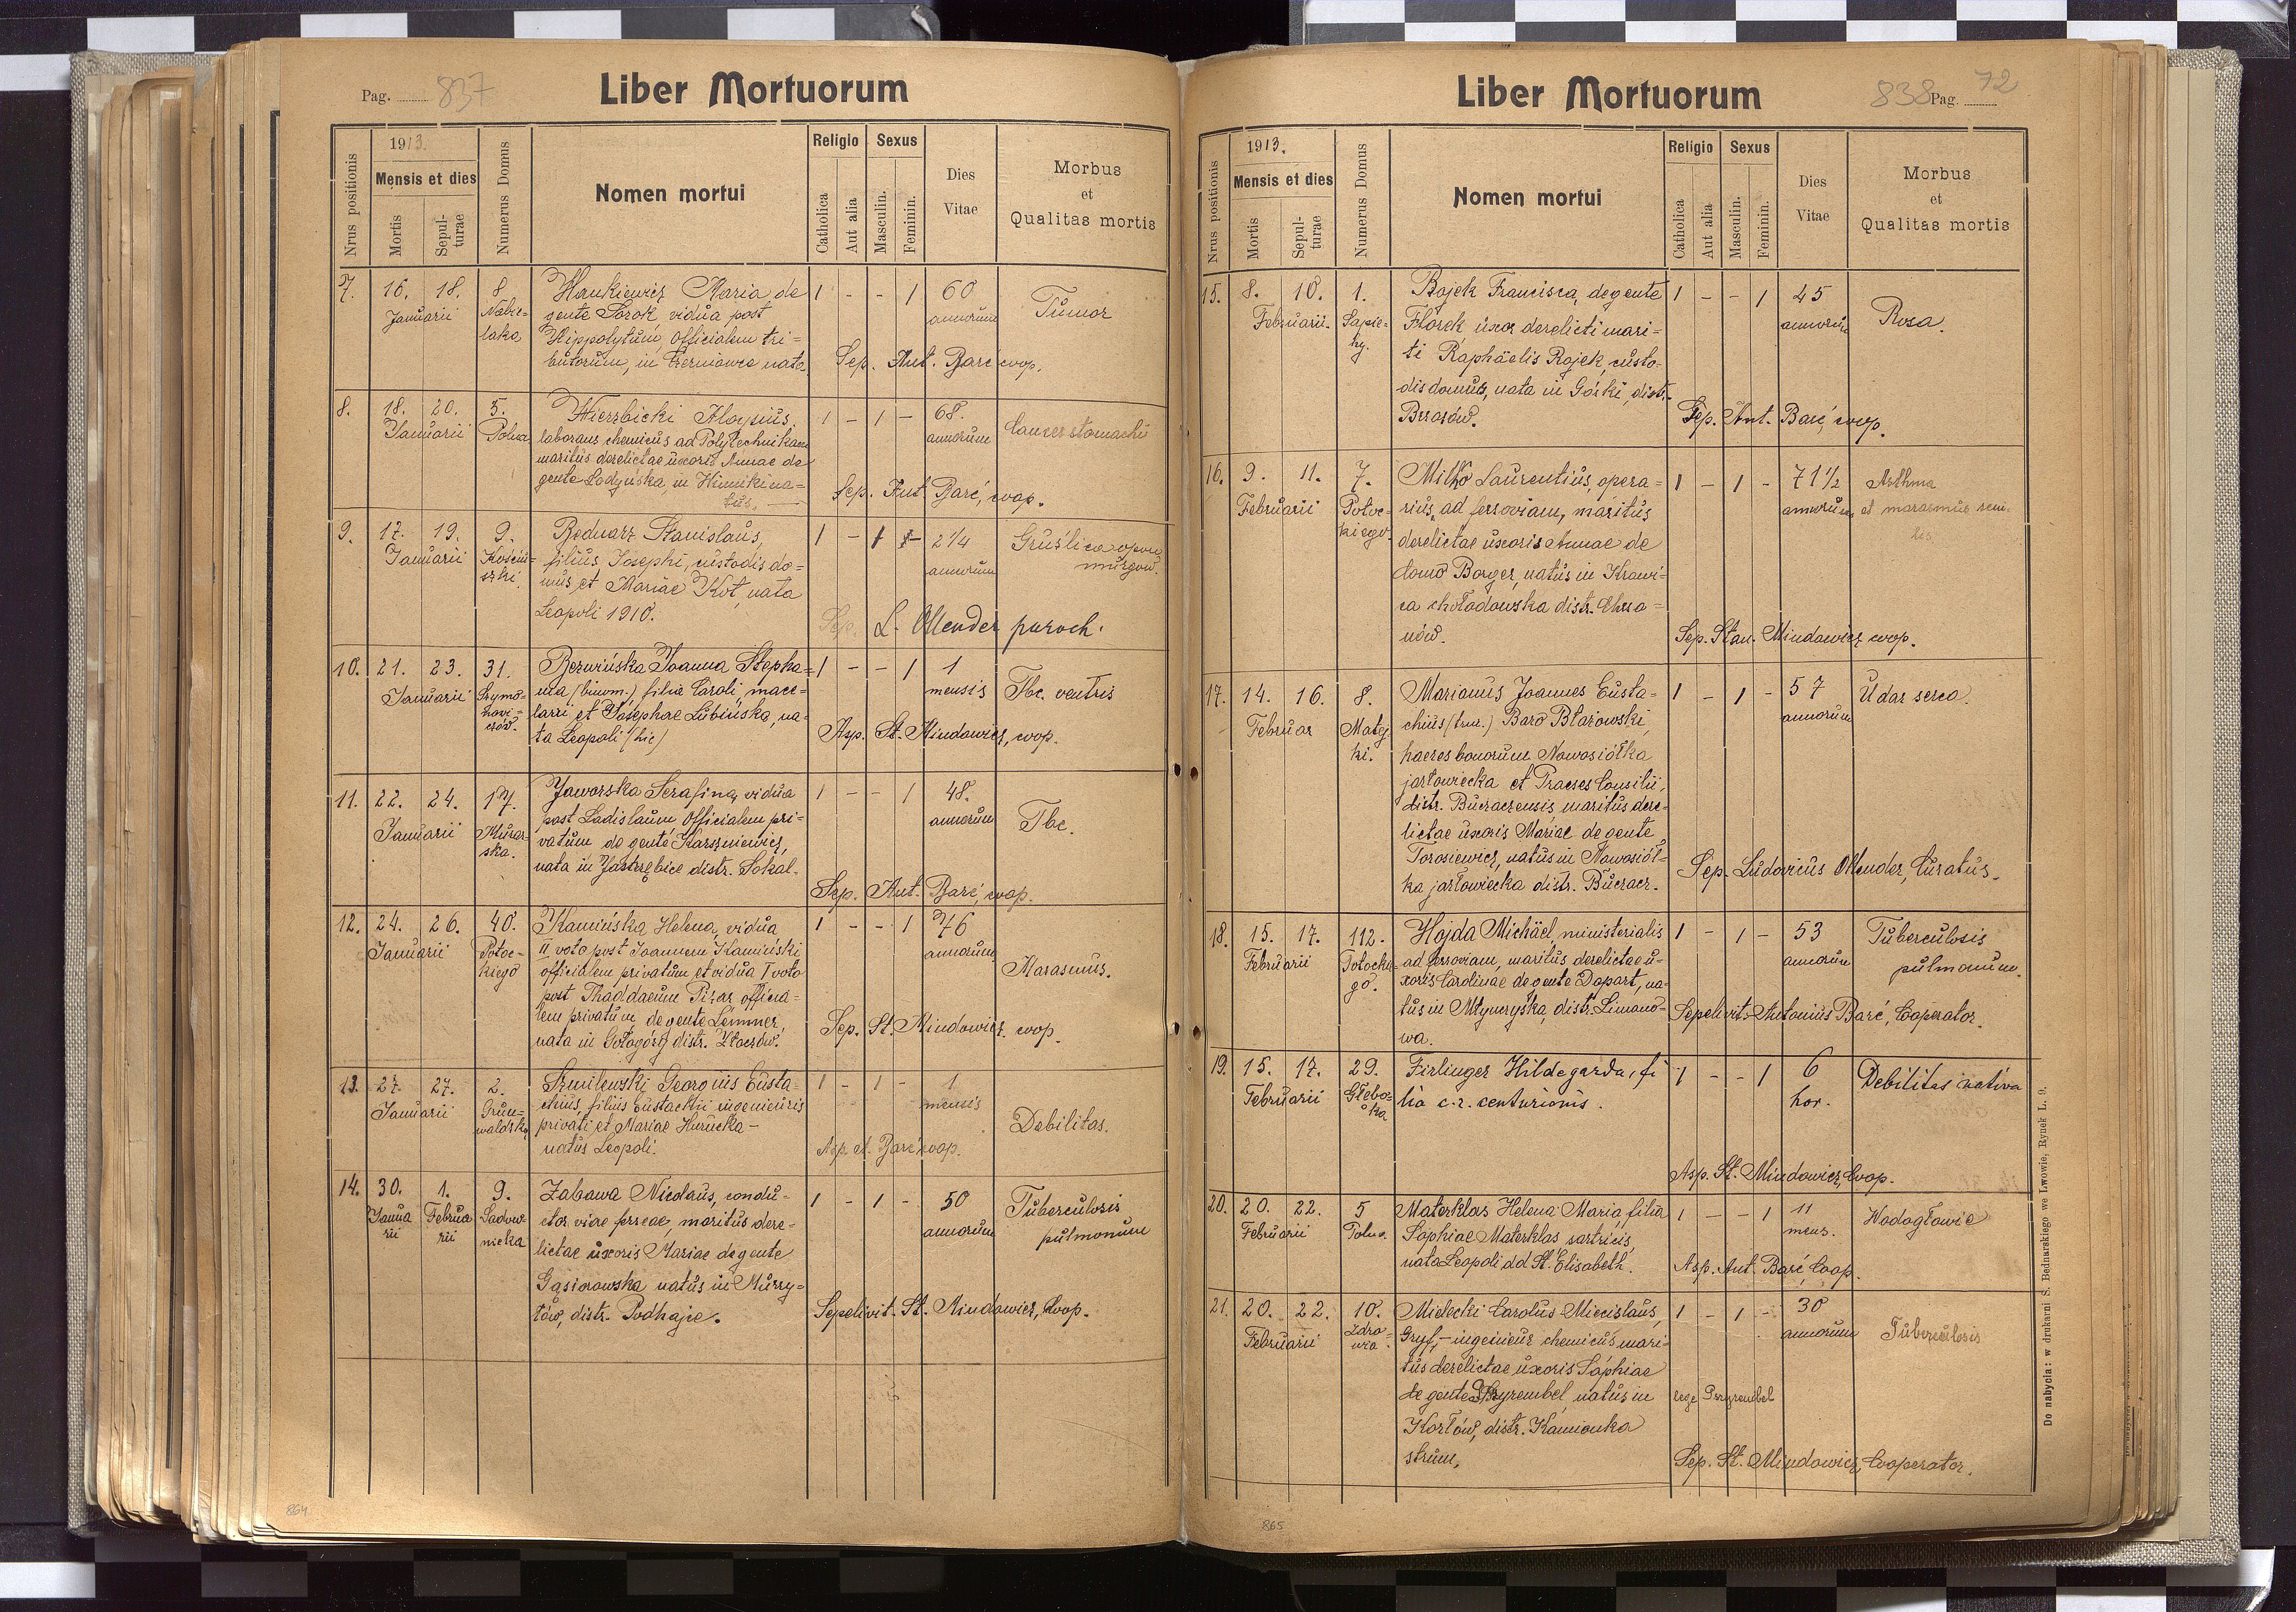 Pag. 837
Liber Mortuorum
Nrus positionis
1913.
Mensis et dies
Mortis
Sepulturae
Numerus Domus
Nomen mortui
Religio
Catholica
Aut alia
Sexus
Masculin.
Feminin.
Dies Vitae
Morbus et Qualitas mortis
7. 16. 18. Januarii 8 Nabielaka
Hankiewicz Maria de
gente Sorok vidua post
Hippolytum, officialem tri=
butorum, in Czerniowce nata
1 - - 1 60 annorum Tumor
Sep. Ant. Barć coop.
8. 18. 20. Januarii 5. Polna
Wierzbicki Aloysius,
laborans chemicus ad Polytechnikam
maritus derelictae uxoris Annae de
gente Lodyńska, in
tus.
1 - 1 - 68. annorum Cancer stomachi
Sep. Ant. Barć, coop.
9. 17. 19. Januarii 9. Kościuszki
Bednarz Stanislaus,
filius Josephi, custodis do=
mus et Mariae Kot, nata
Leopoli 1910.
1 - 1 - 2 1/4 annorum Gruźlica opon mózgow.
Sep. L. Ollender paroch.
10. 21. 23. Januarii 31. Szymonowiczów.
Bezwińska Joanna Stepha=
nia (binom.) filia Caroli, mace=
larii et Josephae Lubińska, na=
ta Leopoli (hic)
1 - - 1 1 mensis Tbc. ventris
Asp. St. Mindowicz, coop.
11. 22. 24. Januarii 17. Murarska.
Jaworska Serafina, vidua
post Ladislaum officialem pri=
vatum de gente Karszniewicz,
nata in Jastrzębice distr. Sokal.
1 - - 1 48. annorum Tbc.
Sep. Ant. Barć, coop.
12. 24. 26. Januarii 40. Potockiego
Kamińska Helena, vidua
II voto post Joannem Kamiński
officialem privatum et vidua I voto
post Thaddaeum Pizar officia=
lem privatum, de gente Lemmer,
nata in Gołogóry distr. Złoczów.
1 - - 1 76 annorum Marasmus.
Sep. St. Mindowicz. coop.
13. 27. 27. Januarii 2. Grunwaldzka
Szmilewski Georgius Eusta=
chius, filius Eustachii ingenieuris
privati et Mariae Hurucka -
natus Leopoli.
1 - 1 - 1 mensis Debilitas.
Asp. A. Barć coop.
14. 30. Januarii 1. Februarii 9. Sadownicka
Zabawa Nicolaus, condu=
ctor viae ferreae, maritus dere=
lictae uxoris Mariae de gente
Gąsiorowska natus in Murzy=
łów, distr. Podhajce.
1 - 1 - 50 annorum Tuberculosis pulmonum
Sepelivit. St. Mindowicz, Coop.
864
Liber Mortuorum
838 Pag. 72
Nrus positionis
1913.
Mensis et dies
Mortis
Sepulturae
Numerus Domus
Nomen mortui
Religio
Catholica
Aut alia
Sexus
Masculin.
Feminin.
Dies Vitae
Morbus et Qualitas mortis
15. 8. 10. Februarii. 1. Sapiehy.
Bojek Francisca, de gente
Florek uxor derelicti mari=
ti Raphäelis Rojek, custo=
dis domus, nata in Górki, distr.
Brzozów.
1 - - 1 45 annorum Rosa.
Sep. Ant. Barć, coop.
16. 9. 11. Februarii 7. Potockiego.
Mitko Laurentius, opera=
rius, ad ferroviam, maritus
derelictae uxoris Annae de
domo Borger, natus in Krowi=
ca chołodowska distr. Chrza=
nów.
1 - 1 - 71 1/2 annorum Asthma et marasmus seni=
lis.
Sep. Stan. Mindowicz coop.
17. 14. 16. Februar 8. Matejki.
Marianus Joannes Eusta=
chius (trin.) Baro Błażowski,
haeres bonorum Nowosiółka
jazłowiecka et Praeses Consilii,
distr. Buczaczensis maritus dere=
lictae uxoris Mariae de gente
Torosiewicz, natus in Nowosiół=
ka jazłowiecka distr. Buczacz.
1 - 1 - 57 annorum Udar serca.
Sep. Ludovicus Ollender, Curatus.
18. 15. 17. Februarii 112. Potockiego.
Hojda Michäel, ministerialis
ad ferroviam, maritus derelictae u=
xoris Carolinae de gente Dopart, na=
tus in Młynczyska, distr. Limano=
wa.
1 - 1 - 53 annorum Tuberculosis pulmonum.
Sepelivit. Antonius Barć, Cooperator.
19. 15. 17. Februarii 29. Głęboka
Firlinger Hildegarda, fi
lia c. r. centurionis.
1 - - 1 6 hor. Debilitas nativa
Asp. St. Mindowicz, Coop.
20. 20. 22. Februarii 5 Polna.
Materklas Helena Maria filia
Sophiae Materklas sartricis,
nata Leopoli ad St. Elisabeth.
1 - - 1 11 mens. Wodogłowie
Asp. Ant. Barć, Coop.
21. 20. 22. Februarii 10. Zdrowia.
Mielecki Carolus Miecislaus,
Gryf, - ingenieur chemicus mari=
tus derelictae uxoris Sophiae
de gente Przyrembel, natus in
Kozłów, distr. Kamionka
strum.
1 - 1 - 30 annorum Tuberculosis
lege Przyrembel
Sep. St. Mindowicz, Cooperator.
865
Do nabycia: w drukarni S. Bednarskiego we Lwowie, Rynek L. 9.